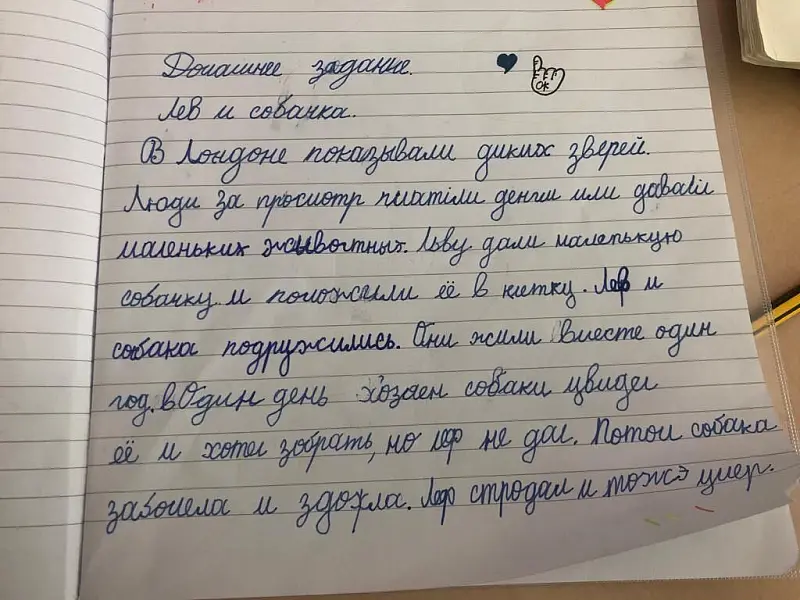 Домашнее задание.
OK
Лев и собачка.
В Лондоне показывали диких зверей.
Люди за просмотр платили денги или давали
маленьких животных. Льву дали маленькую
собачку и положили её в клетку. Леф и
собака подружились. Они жили вместе один
год. в Один день хозаен собаки увидел
её и хотел зобрать, но леф не дал. Потом собака
заболела и здохла. Леф стродал иможэ умер.